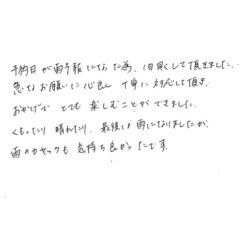 予約日が雨予報になった為、1日早くして頂きました。
急なお願いに心良く丁寧に対応して頂き、
おかげで とても 楽しむことができました。
くもったり 晴れたり、最後は雨になりましたが、
雨のカヤックも 気持ち良かったです。